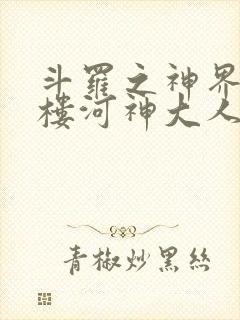 斗羅之神界
樓河神大人
青椒炒黑絲